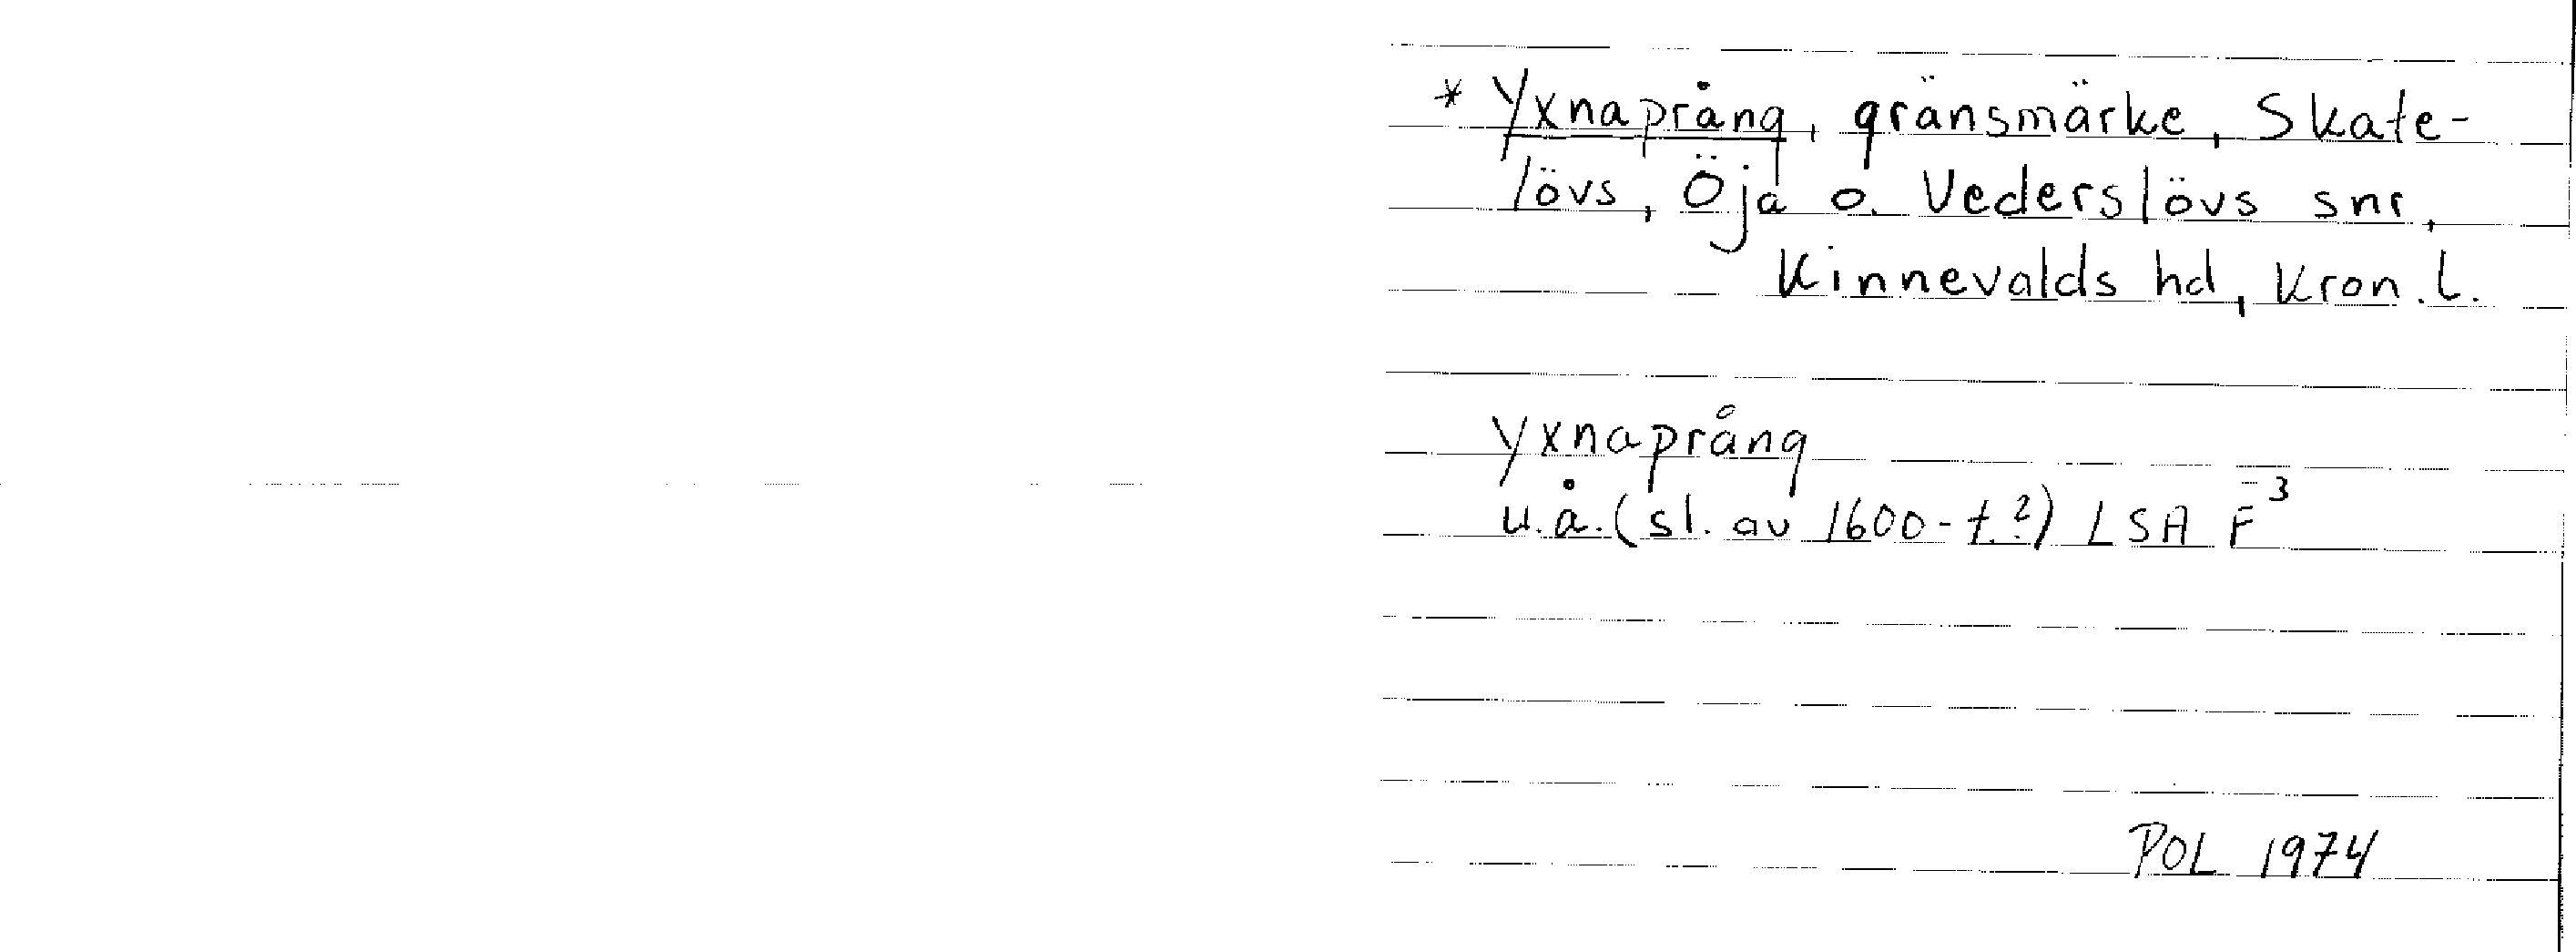 * Yxnaprång, gränsmärke, Skate-
lövs, Öja o. Vederslövs snr,
Kinnevalds hd, Kron.l.
Yxnaprång
u.å. (sl. av 1600-t.?) LSA F³
POL 1974